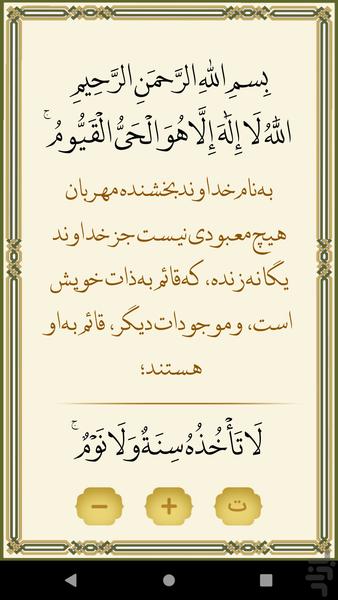 بِسمِ اللهِ الرَّحمَنِ الرَّحِيمِ
اللَّهُ لَا إِلَٰهَ إِلَّا هُوَ الْحَيُّ الْقَيُّومُ ۚ
به نام خداوند بخشنده مهربان
هیچ معبودی نیست جز خداوند
یگانه زنده، که قائم به ذات خویش
است، و موجودات دیگر، قائم به او
هستند؛
لَا تَأْخُذُهُ سِنَةٌ وَلَا نَوْمٌ ۚ
ت + −
بازار